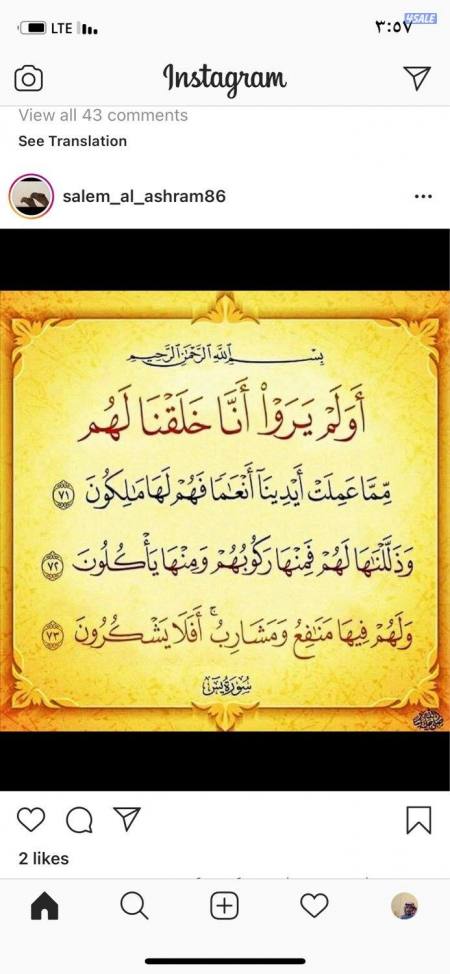 LTE
٣:٥٧
4SALE
Instagram
View all 43 comments
See Translation
salem_al_ashram86
بِسْمِ اللَّهِ الرَّحْمَٰنِ الرَّحِيمِ
أَوَلَمْ يَرَوْا۟ أَنَّا خَلَقْنَا لَهُم
مِّمَّا عَمِلَتْ أَيْدِينَآ أَنْعَٰمًا فَهُمْ لَهَا مَٰلِكُونَ ٧١
وَذَلَّلْنَٰهَا لَهُمْ فَمِنْهَا رَكُوبُهُمْ وَمِنْهَا يَأْكُلُونَ ٧٢
وَلَهُمْ فِيهَا مَنَٰفِعُ وَمَشَارِبُ ۚ أَفَلَا يَشْكُرُونَ ٧٣
سُورَةُ يسٓ
2 likes